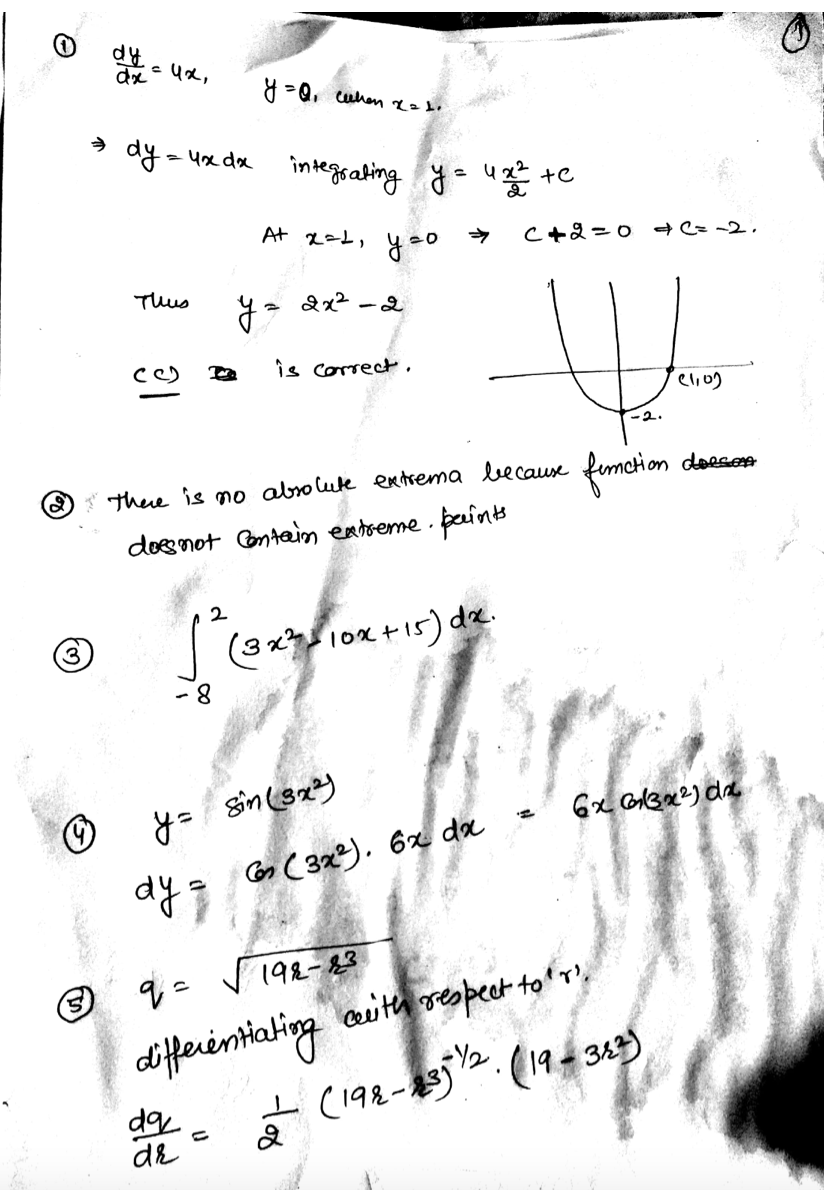 ①
① dy/dx = 4x, y = 0, when x = 1.
⇒ dy = 4x dx integrating y = 4 x²/2 + c
At x=1, y=0 ⇒ c + 2 = 0 ⇒ c = -2.
Thus y = 2x² - 2
(c) is correct.
(1,0)
-2.
② There is no absolute extrema because function
does not contain extreme. points
③ ∫₋₈² (3x² - 10x + 15) dx.
④ y = sin(3x²)
dy = cos(3x²). 6x dx = 6x cos(3x²) dx
⑤ q = √(19r - r³)
differentiating with respect to 'r'.
dq/dr = 1/2 (19r - r³)^(-1/2) . (19 - 3r²)